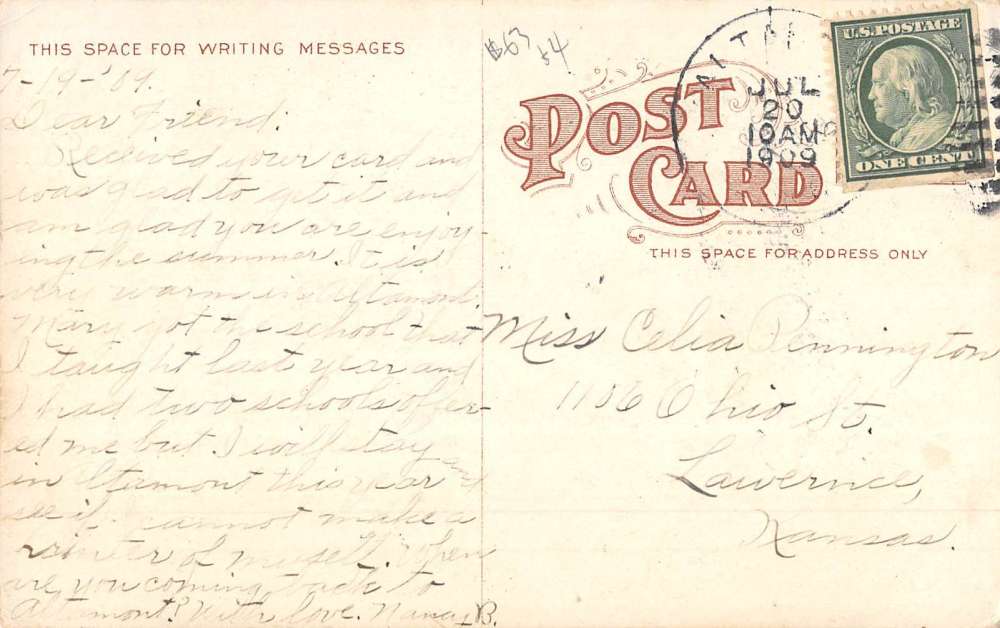 THIS SPACE FOR WRITING MESSAGES
7-19-'09.
Dear Friend:
Received your card and
was glad to get it and
am glad you are enjoy-
ing the summer. It is
very warm in Altamont.
Mary got the school that
I taught last year and
I had two schools offer-
ed me but I will stay
in Altamont this year and
see if I cannot make a
of myself. When
are you coming back to
Altamont? With love. Nancy B.
$63
$4
POST
CARD
JUL
20
10 AM
1909
U.S. POSTAGE
ONE CENT
THIS SPACE FOR ADDRESS ONLY
Miss Celia Pennington
1106 Ohio St.
Lawernce,
Kansas.